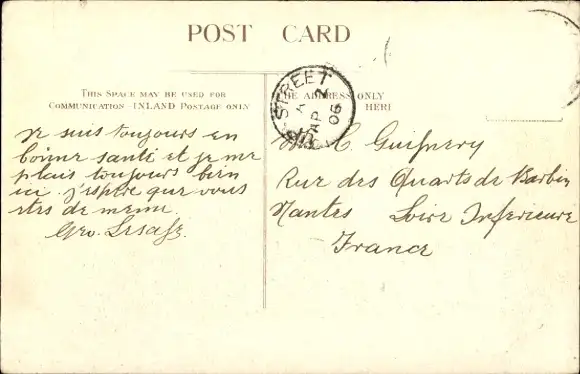 POST CARD
THIS SPACE MAY BE USED FOR
COMMUNICATION INLAND POSTAGE ONLY
THE ADDRESS ONLY
HERE
STREET
A
AP 2
06
Je suis toujours en
bonne santé et je me
plais toujours bien
ici. j'espère que vous
etes de meme
Geo. Lesage.
C. Guispery
Rue des Quarts de Barbin
Nantes Loire Inferieure
France